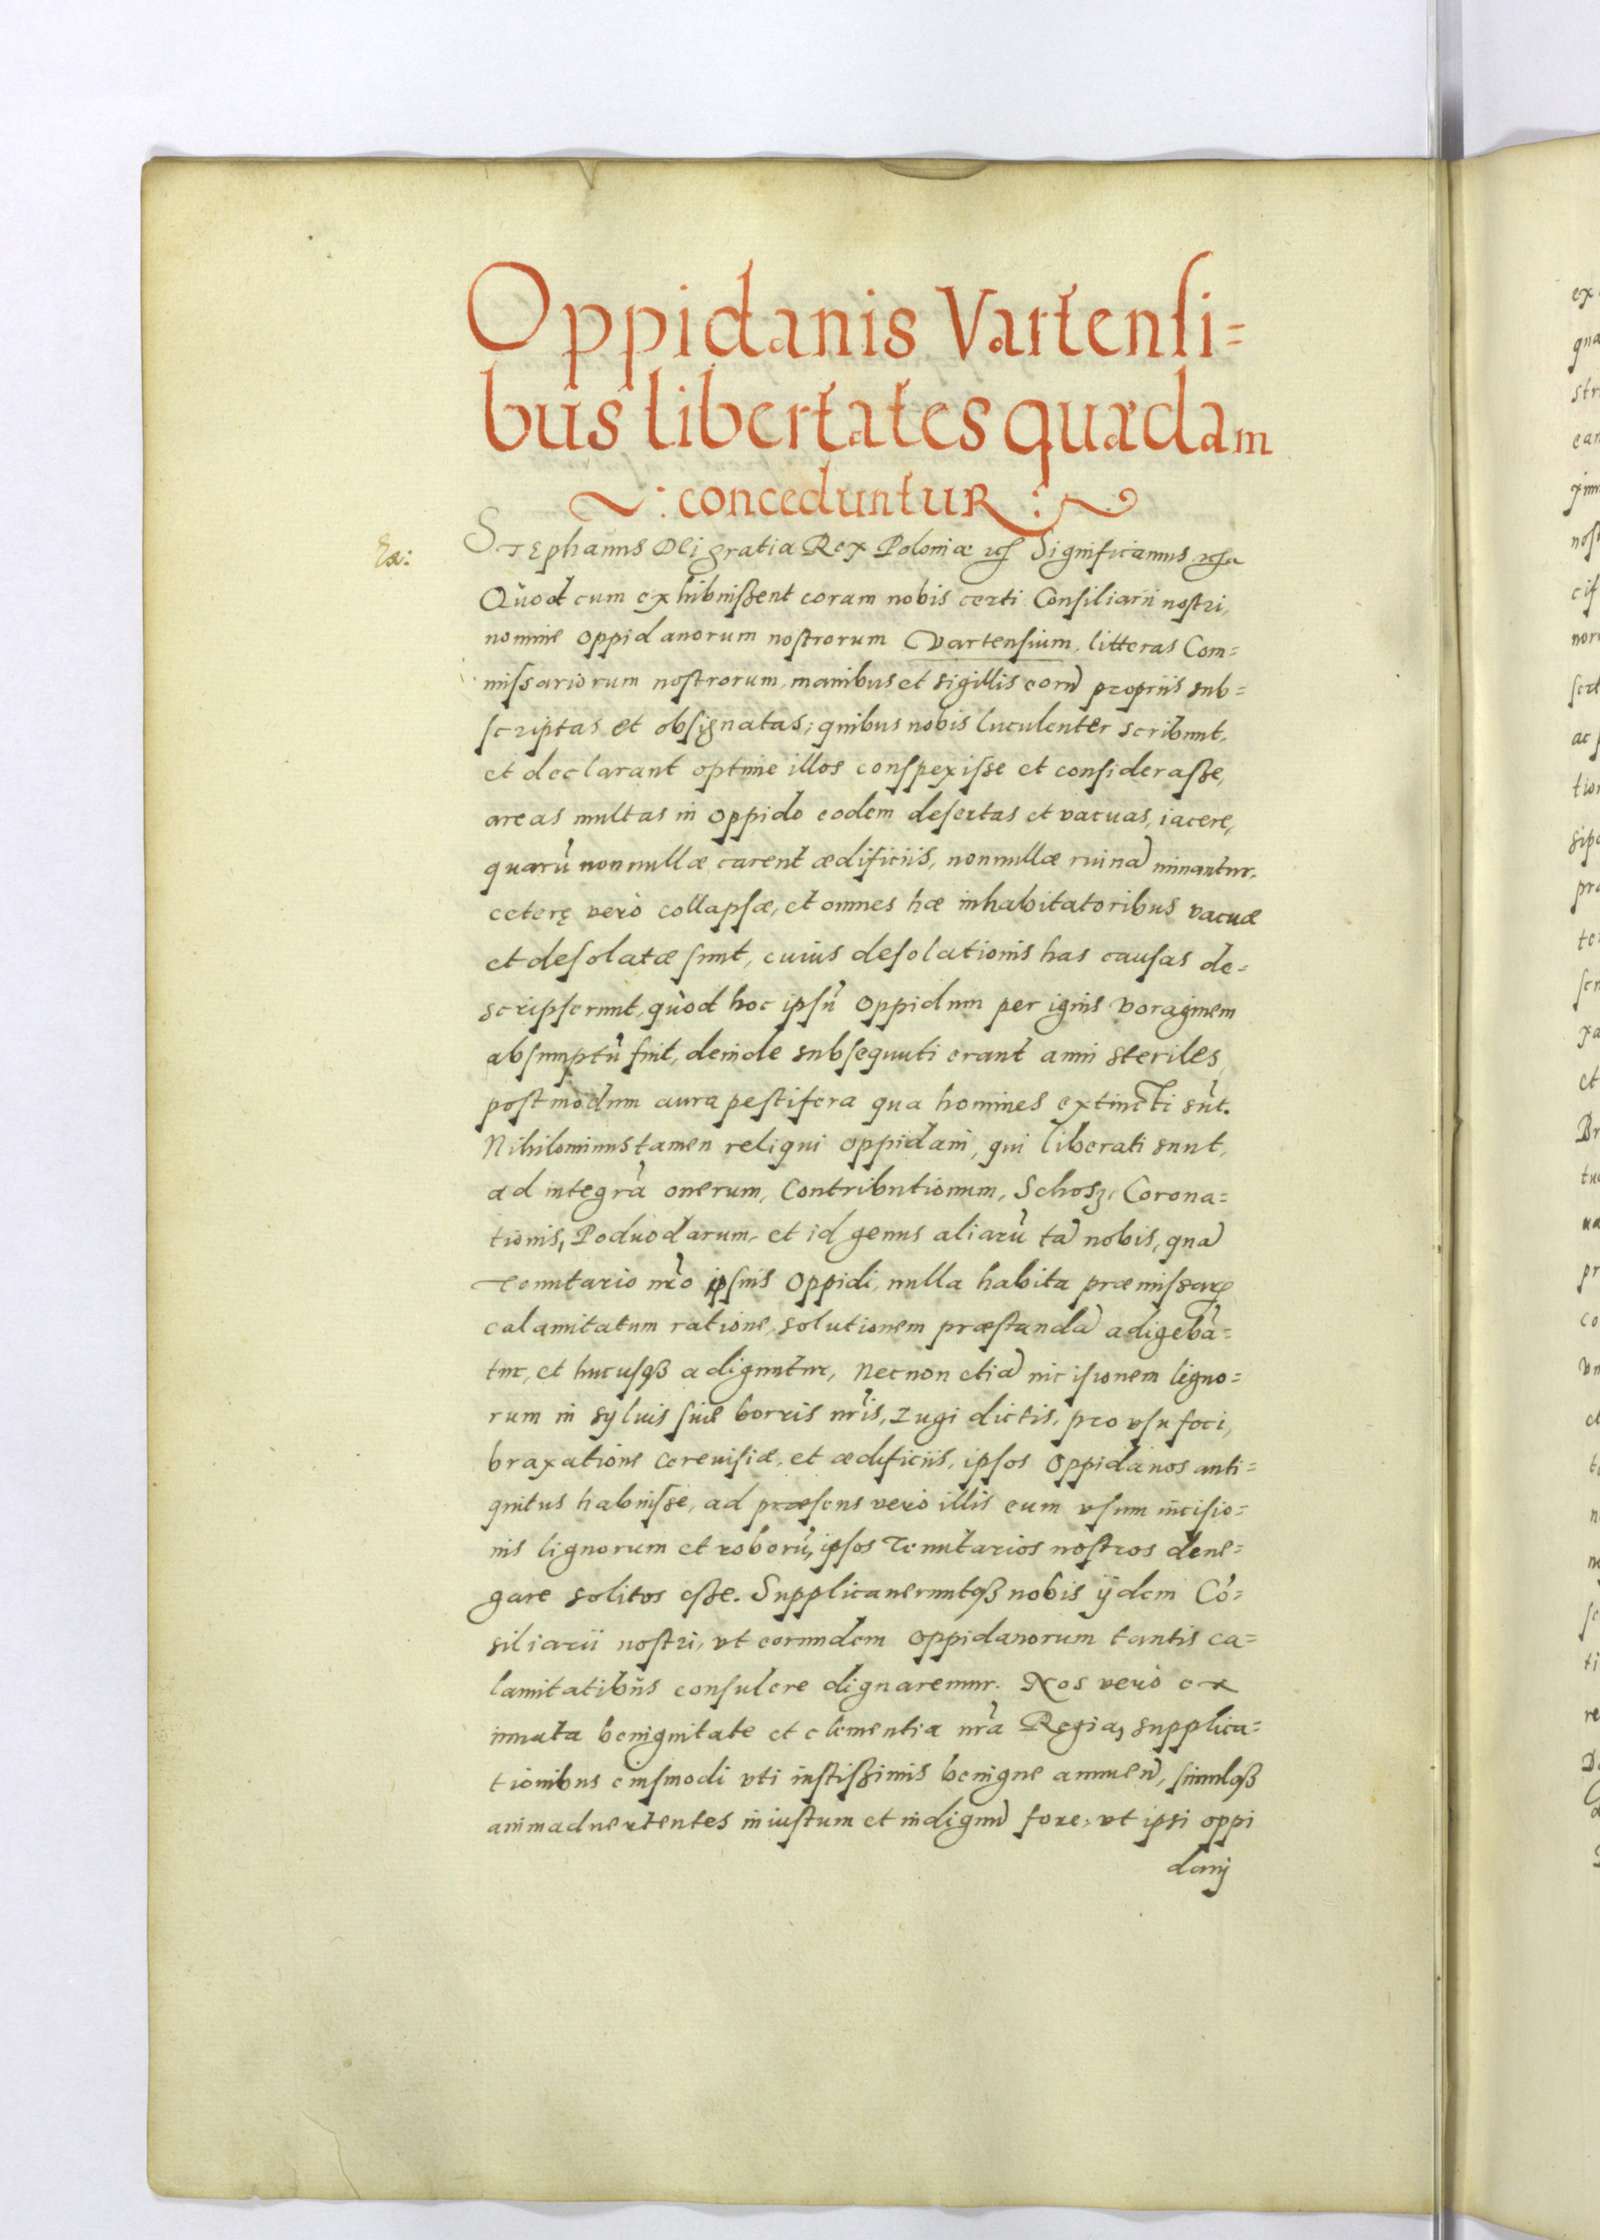 Oppidanis Vartensi=
bus libertates quædam
~: conceduntur :~
Ex:
Stephanus Dei gratia Rex Poloniæ Significamus
Quod cum exhibuissent coram nobis certi Consiliarii nostri,
nomine oppidanorum nostrorum Vartensium, litteras Com=
missariorum nostrorum, manibus et sigillis eorũ propriis sub=
scriptas et obsignatas; quibus nobis luculenter scribunt,
et declarant optime illos conspexisse et considerasse,
areas multas in oppido eodem desertas et vacuas, iacere,
quarũ nonnullæ carent ædificiis, nonnullæ ruinã minantur.
ceterę vero collapsæ, et omnes hæ inhabitatoribus vacuæ
et desolatæ sunt, cuius desolationis has causas de=
scripserunt, quòd hoc ipsũ oppidum per ignis voraginem
absumptũ sint, deinde subsequuti erant anni steriles,
postmodum aura pestifera qua homines extincti sũt.
Nihilominus tamen reliqui oppidani, qui liberati sunt,
ad integrã onerum, Contributionum, Schosz, Corona=
tionis, Poduodarum, et id genus aliarũ tã nobis, quã
Tenutario nr̃o ipsius oppidi, nulla habita præmissarꝝ
calamitatum ratione, solutionem præstandã adigebã=
tur, et hucusqꝫ adiguntur, Necnon etiã incisionem ligno=
rum in syluis siue borris nr̃is, zugi dictis, pro vsu foci,
braxatione cereuisiæ, et ædificiis, ipsos oppidanos anti=
quitus habuisse, ad præsens vero illis eum vsum incisio=
nis lignorum et roborũ, ipsos Tenutarios nostros dene=
gare solitos esse. Supplicaueruntqꝫ nobis ijdem Cõ=
siliarii nostri, vt eorundem oppidanorum tantis ca=
lamitatibus consulere dignaremur. Nos vero ex
innata benignitate et clementia nr̃a Regia, supplica=
tionibus eiusmodi vti iustissimis benigne annuen̄, simulqꝫ
animaduertentes iniustum et indignũ fore, vt ipsi oppi
danj